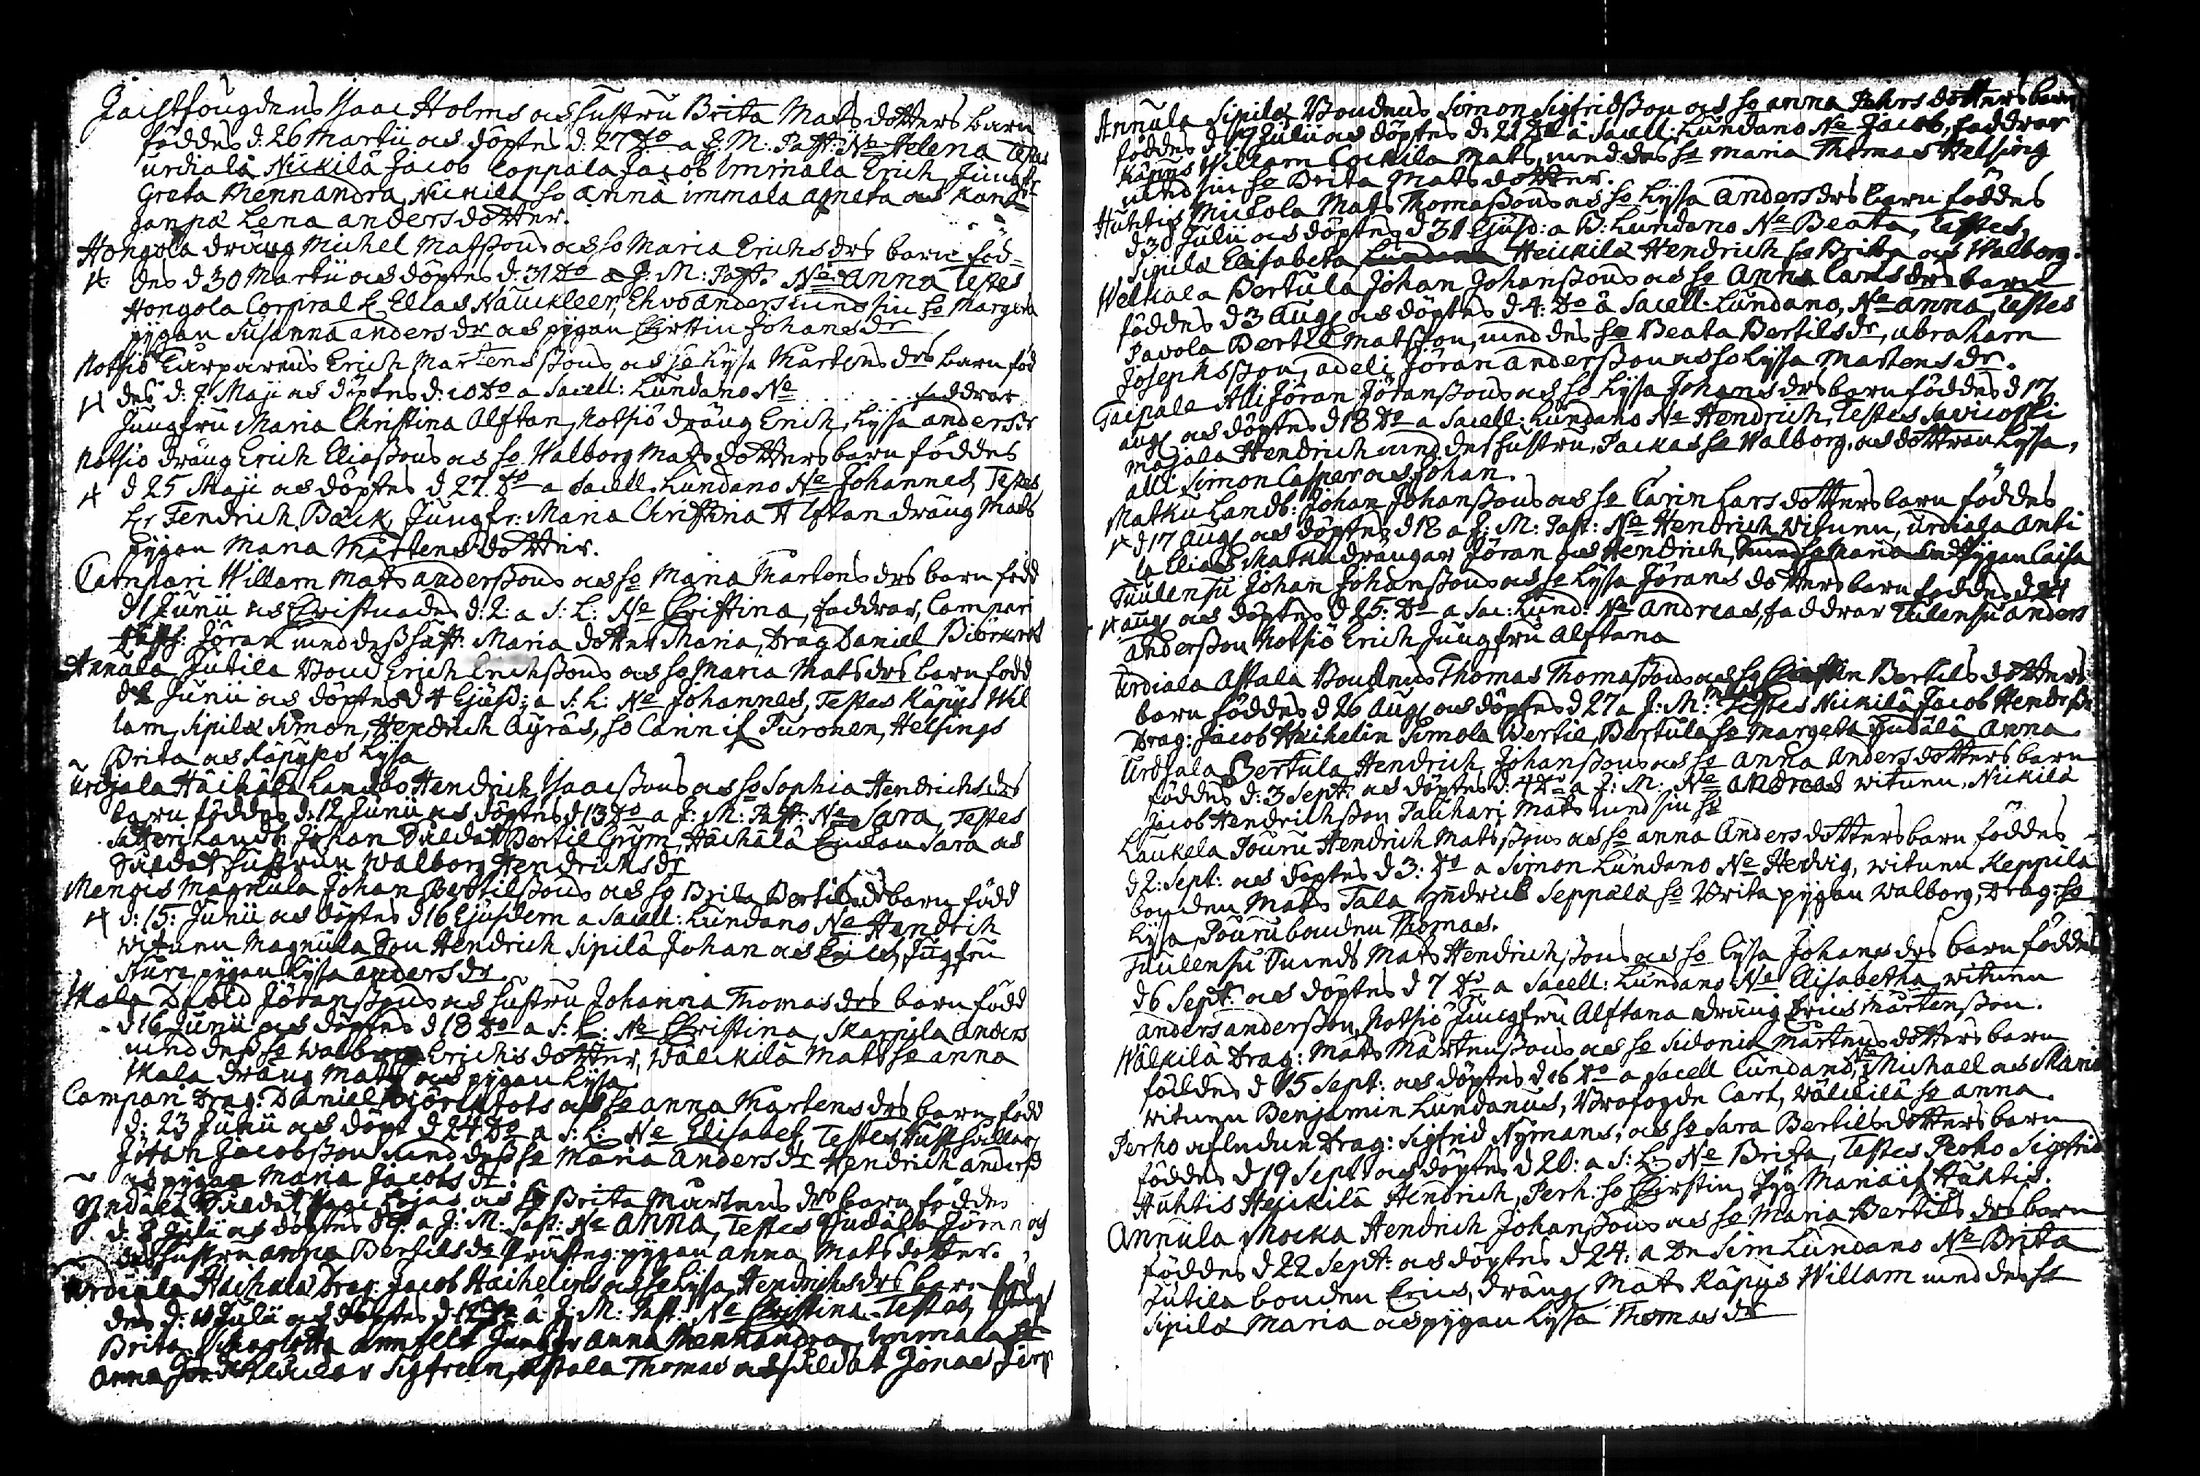 Isaac Holms och hustru Brita Mats dotters barn
föddes d: 26 Martii och döptes d: 27 do a J: M: Past: Ne Helena Testes
urdiala Nickilä Jacob Coppala Jacob Immala Erich, Jungfr
Greta Mennandra, Nickilä ho Anna immala agneta och
Lena anders dotter.
Hongola dräng Michel Matssons och ho Maria Erichs drs barn föd=
des d 30 Martii och döptes d: 31 do a J: M: Past: Ne Anna Testes
Hongola Corpral Elias Nauckleer, anders med sin ho Margeta
pygan Susanna anders dr och pygan Christin Johans dr
Notsiö Erich Martenssons och ho Lysa Martens drs barn föd
des d: 9 Maji och döptes d: 10 do a Sacell: Lundano Ne faddrar
Jungfru Maria Christina Alftan, Notsiö dräng Erich, Lyssa anders dr
Notsiö dräng Erich Eliassons och ho Valborg Mats dotters barn föddes
d 25 Maji och döptes d 27 do a Sacell: Lundano Ne Johannes, Testes
hr Fendrich Bäck, Jungfr: Maria Christina Alftan dräng Mats
pygan Maria Mårtens dotter.
Campari Willam Mats anderssons och ho Maria Martens drs barn född
d 1 Junii och Christnades d: 2: a S: L: Ne Christina, faddrar, Campari
Jöran med dess hust: Maria dotter Maria, Drag Daniel
Annula Jutila Bond Erich Erichssons och ho Maria Mats drs barn född
d Junii och döptes d 4 Ejusd: a S: L: Ne Johannes, Testes Käpys Wil
lam, Sipilä Simon, Hendrich Äyräs, ho Carin if Puronen, Helsings
Brita och Käpys Lysa
Urdiala Häihälä Hendrich Isaacssons och ho Sophia Hendrichs drs
barn föddes d: 12 Junii och döptes d 13 do a J: M: Past: Ne Sara, Testes
Johan Soldat Bertil Grym, Häihälä Enckan Sara och
Soldat hustrun Walborg Hendrichs dr
Mengis Magnula Johan Bertilssons och ho Brita Bertils drs barn född
d: 15: Junii och döptes d 16 Ejusdem a Sacell: Lundano Ne Hendrich
witnen Magnula Son Hendrich Sipilä Johan och Erich, Jugfru
Sture, pygan Lysa anders dr
Skala David Jöranssons och hustru Johanna Thomas drs barn född
d 16 Junii och döptes d 18 do a S: L: Ne Christina, Skarpila Anders
med dess ho Walborg Erichs dotter, Wälckilä Mats ho anna
Skala dräng Mats och pygan Lysa
Campari Drag: Daniel och ho anna Martens drs barn född
d: 23 Junii och döpt d 24 do a S: L: Ne Elisabet, Testes
Jöran Jacobsson med dess ho Maria Anders dr Hendrich anderss
och pygan Maria Jacobs dr
Yndälä Soldat och ho Brita Mårtens drs barn föddes
d: 8 Julii och döptes a J: M: Past: Ne Anna, Testes Jöran och
des hustru anna Bertils dr pygan anna Mats dotter.
Urdiala Häihälä Drag: Jacob Häihelins och ho Lysa Hendrichs drs barn föd
des d: 11 Julii och döptes d 12 do a J: M: Past: Ne Christina Testes,
Brita Jungfr Anna Mennandra, Immala
Anna Sigfrien, Astala Thomas och soldat Jonas
Annula Sipilä Bondens Simon Sigfridssons och ho anna Pehrs dotters barn
föddes d 19 Julii och döptes d: 21 do a Sacell: Lundano Ne Jacob, faddrar
Käpys Willam Cockila Mats, med des ho Maria Thomas Helsing
med sin ho Brita Mats dotter.
Huhtis Mickola Mats Thomassons och ho Lyssa anders drs barn föddes
d 30 Julii och döptes d 31 Ejusd: a D: Lundano Ne Beata, Testes,
Sipilä Elisabeta Heickilä Hendrich ho Brita och Walborg.
Welkala Bertula Johan Johanssons och ho Anna Lars drs barn
föddes d 3 Aug och döptes d 4: do a Sacell: Lundano, Ne anna, Testes
Pavola Bertil Matsson, med des ho Beata Bertils dr, abraham
Josephsson, adeli Jöran andersson och ho Lyssa Martens dr.
Taipale Alli Jöran Jöranssons och ho Lyssa Johans drs barn föddes d 17
aug och döptes d 18 do a Sacell: Lundano Ne Hendrich, Testes
majala Hendrich med des hustru, Packas ho Walborg, och dottran Lyssa,
alli Simon Casper och Johan.
Matku Landb: Johan Johanssons och ho Carin Lars dotters barn föddes
d 17 Aug och döptes d 18 a J: M: Past: Ne Hendrich, witnen, urdiala Anti
la Elias Matku drängar Jöran och Hendrich, pygan Caisa
Tuulensu Johan Johanssons och ho Lyssa Jörans dotters barn föddes d 24
aug och döptes d 25: do a Sac: Lund: Ne Andreas, faddrar Tulensu anders
andersson Notsiö Erich Jungfru Alftana
Urdiala Astala Bondens Thomas Thomassons och ho Christin Bertils dotters
barn föddes d 26 Aug och döptes d 27 a J: M: Testes Nickilä Jacob Hendrss
Drag: Jacob Häihelin Simola Bertil, Bertula ho Margeta Anna
Urdiala Bertula Hendrich Johanssons och ho Anna Anders dotters barn
föddes d: 3 Sept: och döptes d: 4 do a J: M: Ne Andreas witnen, Nickilä
Jacob Hendrichsson Pauhari Mats med sin ho
Laukela Pouru Hendrich Matssons och ho anna Anders dotters barn föddes
d 2: Sept: och döptes d 3: do a Simon Lundano Ne Hedvig, witnen Keppila
bonden Mats Tala Hndrich Seppälä ho Brita pygan Walborg, Drag: ho
Lysa, Pouru bonden Thomas.
Tuulensu Mats Hendrichssons och ho Lyssa Johans drs barn föddes
d 6 Sept: och döptes d 7 do a Sacell: Lundano Ne Elisabetha witnen
anders andersson, Notsiö Jungfru Alftana dräng Erics Mårtensson.
Wälkilä Drag: Mats Mårtenssons och ho Sidonia Mårtens dotters barn
föddes d 15 Sept: och döptes d 16 do a Sacell Lundano, Ne Michael och Maria
witnen Benjamin Lundanus, Brofogde Carl, Wälckilä ho anna.
Perho Drag: Sigfrid Nymans, och ho Sara Bertils dotters barn
föddes d 19 Sept och döptes d 20: a S: L: Ne Brita, Testes Perho Sigfrid
Huhtis Heickilä Hendrich, Perh: ho Christin, pyg Maria if Huhtis.
Annula Mocka Hendrich Johanssons och ho Maria Bertils drs barn
föddes d 22 Sept: och döptes d 24: a Dn Sim Lundano Ne Brita
Jutila bonden Erics, dräng Mats Käpys Willam med des ho
Sipilä Maria och pygan Lyssa Thomas dr